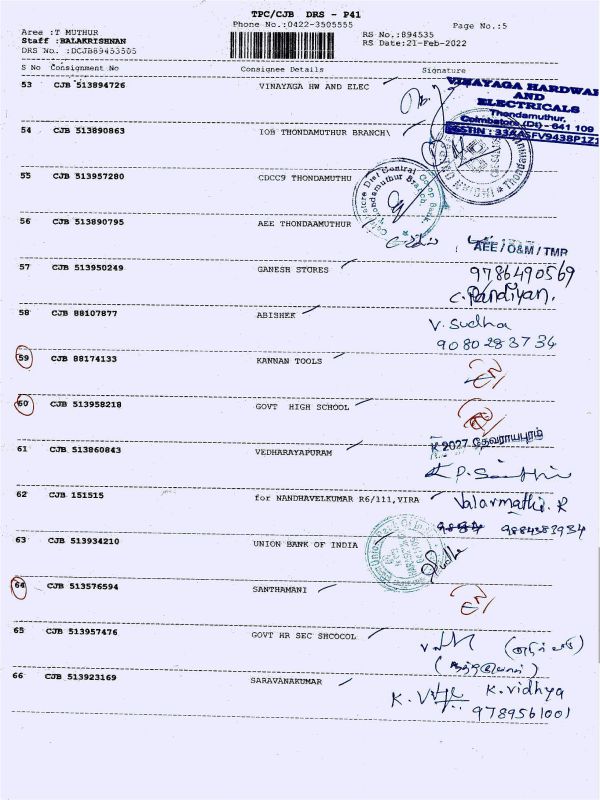 TPC/CJB DRS - P41
Phone No.:0422-3505555
Page No.:5
Aree :T MUTHUR
RS No.:894535
Staff :BALAKRISHNAN
RS Date:21-Feb-2022
DRS No. :DCJB89453505
S No Consignment No Consignee Details Signature
53 CJB 513894726 VINAYAGA HW AND ELEC
VINAYAGA HARDWAR
AND
ELECTRICALS
Thondamuthur,
Coimbatore (Dt) - 641 109
GSTIN : 33AASFV9438P1Z1
54 CJB 513890863 IOB THONDAMUTHUR BRANCH\
55 CJB 513957280 CDCC9 THONDAMUTHU
56 CJB 513890795 AEE THONDAAMUTHUR
AEE / O&M / TMP
57 CJB 513950249 GANESH STORES
9786490569
C. Pandiyan.
58 CJB 88107877 ABISHEK
V. Sudha
9080283734
59 CJB 88174133 KANNAN TOOLS
60 CJB 513958218 GOVT HIGH SCHOOL
61 CJB 513860843 VEDHARAYAPURAM
K 2027 தேவராயபுரம்
62 CJB 151515 for NANDHAVELKUMAR R6/111,VIRA
Valarmathi. R
9884383934
63 CJB 513934210 UNION BANK OF INDIA
64 CJB 513576594 SANTHAMANI
65 CJB 513957476 GOVT HR SEC SHCOCOL
66 CJB 513923169 SARAVANAKUMAR
K. Vidhya
9789561001